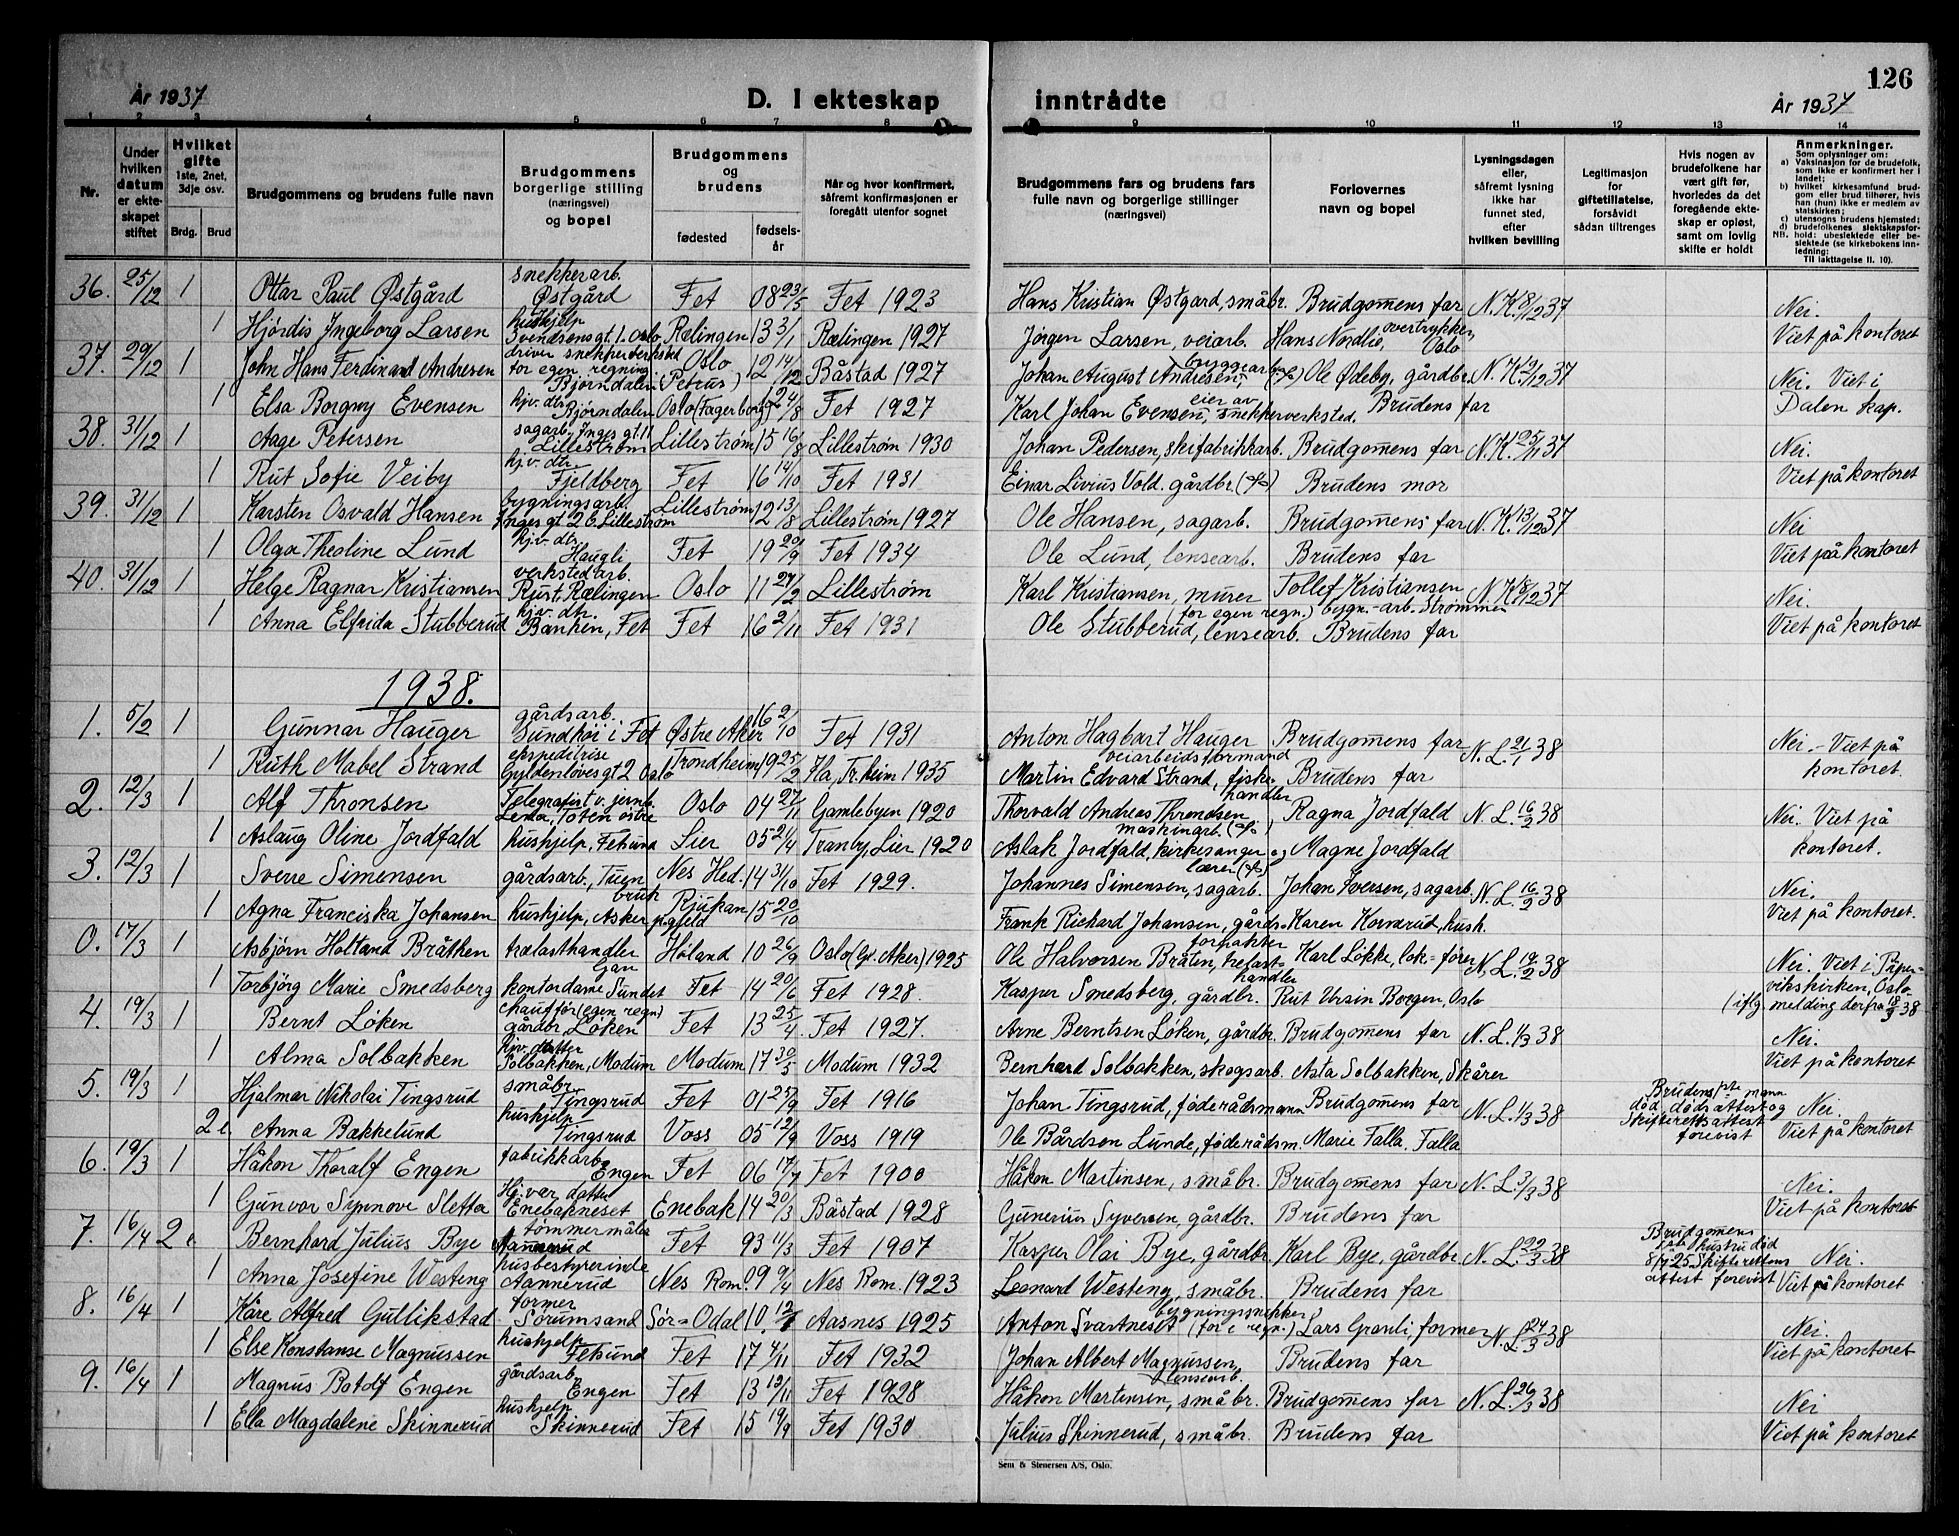 126
År 1937
D. I ekteskap inntrådte
År 1937
1 2 3 4 5 6 7 8 9 10 11 12 13 14
Nr.
Under hvilken datum er ekteskapet stiftet
Hvilket gifte 1ste, 2net, 3dje osv.
Brdg. Brud
Brudgommens og brudens fulle navn
Brudgommens borgerlige stilling (næringsvei) og bopel
Brudgommens og brudens
fødested
fødselsår
Når og hvor konfirmert, såfremt konfirmasjonen er foregått utenfor sognet
Brudgommens fars og brudens fars fulle navn og borgerlige stillinger (næringsvei)
Forlovernes navn og bopel
Lysningsdagen eller, såfremt lysning ikke har funnet sted, efter hvilken bevilling
Legitimasjon for giftetillatelse, forsåvidt sådan tiltrenges
Hvis nogen av brudefolkene har vært gift før, hvorledes da det foregående ekteskap er opløst, samt om lovlig skifte er holdt
Anmerkninger.
Som oplysninger om:
a) Vaksinasjon for de brudefolk, som ikke er konfirmert her i landet;
b) hvilket kirkesamfund brudgom eller brud tilhører, hvis han (hun) ikke er medlem av statskirken;
c) utensogns brudens hjemsted;
d) brudefolkenes slektskapsforhold: ubeslektede eller beslektede (se kirkebokens innledning: Til iakttagelse II. 10).
NB.
36. 25/12 1 Ottar Paul Østgård snekkerarb. Østgård Fet 08 23/5 Fet 1923 Hans Kristian Østgard, småbr. Brudgom̄ens far N.K. 8/12 37 Nei.
1 Hjørdis Ingeborg Larsen hushjelp Svendsensgt. 1. Oslo Rælingen 13 3/1 Rælingen 1927 Jørgen Larsen, veiarb. Hans Nordlie, overtrykker, Oslo Viet på kontoret
37. 29/12 1 John Hans Ferdinand Andresen driver snekkerverksted for egen regning. Bjørndalen Oslo (Petrus) 12 14/12 Båstad 1927 Johan August Andresen, byggearb. Ole Ødeby, gårdbr. N.K. 12 37 Nei. Viet i
1 Elsa Borgny Evensen hjv. dtr. Bjørndalen Oslo (Fagerborg) 24/8 Fet 1927 Karl Johan Evensen, eier av snekkerverksted. Brudens far Dalen kap.
38. 31/12 1 Aage Petersen sagarb. Inges gt. 11 Lillestrøm Lillestrøm 15 16/8 Lillestrøm 1930 Johan Pedersen, skifabrikkarb. Brudgom̄ens far N.K. 25/11 37 Nei.
1 Rut Sofie Veiby hjv. dtr. Fjeldberg Fet 16 14/10 Fet 1931 Einar Livius Vold. gårdbr. Brudens mor Viet på kontoret
39. 31/12 1 Karsten Osvald Hansen bygningsarb. Inges gt 26 Lillestrøm Lillestrøm 12 13/8 Lillestrøm 1927 Ole Hansen, sagarb. Brudgom̄ens far N.K. 13/12 37 Nei
1 Olga Theoline Lund hjv. dtr. Haugli Fet 19 20/9 Fet 1934 Ole Lund, lensearb. Brudens far Viet på kontoret
40. 31/12 1 Helge Ragnar Kristiansen verkstedarb. Rælingen Oslo 11 27/2 Lillestrøm Karl Kristiansen, murer (for egen regn.) Tollef Kristiansen bygn.-arb. Strømmen N.K. 8/12 37 Nei.
1 Anna Elfrida Stubberud hjv. dtr. Banken, Fet Fet 16 2/11 Fet 1931 Ole Stubberud, lensearb. Brudens far Viet på kontoret
1938.
1. 5/2 1 Gunnar Hauger gårdsarb. Sundhei i Fet Østre Aker 16 2/10 Fet 1931 Anton Hagbart Hauger veiarbeidsformand Brudgom̄ens far N.L. 21/1 38 Nei. - Viet på
1 Ruth Mabel Strand ekspeditrise Gyldenløvesgt 2 Oslo Trondheim 19 25/2 Ila, Tr.heim 1935 Martin Edvard Strand, fiskehandler Brudens far kontoret.
2. 12/3 1 Alf Thronsen Telegrafist v. jernb. Lena, Toten østre Oslo 04 27/11 Gamlebyen 1920 Thorvald Andreas Throndsen maskinarb. Ragna Jordfald N.L. 16/2 38 Nei. Viet på
1 Aslaug Oline Jordfald hushjelp, Fetsund Lier 05 24/4 Tranby, Lier 1920 Aslak Jordfald, kirkesanger og lærer Magne Jordfald kontoret.
3. 12/3 1 Sverre Simensen gårdsarb. Tuen Nes Hed. 14 31/10 Fet 1929. Johannes Simensen, sagarb. Johan Iversen, sagarb. N.L. 16/2 38 Nei.
1 Agna Franciska Johansen hushjelp, Asker Rjukan 15 20/10 Frank Richard Johansen, gårdsforpakter Karen Korverud, hush. Viet på kontoret.
0. 17/3 1 Asbjørn Holtland Bråthen trelasthandler Gan Høland 10 26/9 Oslo (Gr. Aker) 1925 Ole Halvorsen Bråten, trelasthandler Karl Løkke, lok-fører N.L. 19/2 38 Nei. Viet i Piper-
1 Torbjørg Marie Smedsberg kontordame Sundet Fet 14 20/6 Fet 1928. Kasper Smedsberg, gårdbr. Rut Ursin Borgen, Oslo vikskirken, Oslo
4. 19/3 1 Bernt Løken chauffør (egen regn) gårdbr. Løken Fet 13 25/4 Fet 1927. Arne Berntsen Løken, gårdbr. Brudgom̄ens far N.L. 1/3 38 (iflg melding derfra 18/3 38 Nei.
1 Alma Solbakken hjv. datter Solbakken, Modum Modum 17 30/5 Modum 1932 Bernhard Solbakken, skogsarb. Asta Solbakken, Skårer Viet på kontoret
5. 19/3 1 Hjalmar Nikolai Tingsrud småbr. Tingsrud Fet 01 25/9 Fet 1916 Johan Tingsrud, føderådsmann Brudgom̄ens far N.L. 1/3 38 Brudens 1ste mann død, dødsattest og Skifterettsattest forevist Nei.
2 e. Anna Bakkelund hushjelp Tingsrud Voss 05 12/9 Voss 1919 Ole Bårdsen Lunde, føderådsm. Marie Falla. Falla Viet på kontoret
6. 19/3 1 Håkon Thoralf Engen fabrikkarb. Engen Fet 06 17/7 Fet 1900 Håkon Martinsen, småbr. Brudgom̄ens far N.L. 3/3 38 Nei.
1 Gunvor Synnøve Sletta Hj.vær. datter Enebakneset Enebak 14 20/3 Båstad 1928 Gunerius Syversen, gårdbr. Brudens far Viet på kontoret
7. 16/4 2 e. Bernhard Julius Bye tømmermåler Fet 93 11/3 Fet 1907 Kasper Olai Bye, gårdbr. Karl Bye, gårdbr. N.L. 22/3 38 Brudgom̄ens 1ste hustru død 25 Skifterettens attest forevist Nei.
1 Anna Josefine Westeng husbestyrerinde Aannerud Nes Rom. 09 9/4 Nes Rom. 1923 Leonard Westeng, småbr. Brudens far Viet på kontoret
8. 16/4 1 Kåre Alfred Gullikstad former Sørumsand Sør-Odal 10. 12 Aasnes 1925 Anton Svartneset bygningssnekker (for e. regn.) Lars Granli, former N.L. 24/3 38 Nei.
1 Else Konstanse Magnussen hushjelp Fetsund Fet 17 4/11 Fet 1932 Johan Albert Magnussen, lensearb. Brudens far Viet på kontoret
9. 16/4 1 Magnus Botolf Engen gårdsarb. Engen Fet 13 12/11 Fet 1928 Håkon Martinsen, småbr. Brudgom̄ens far N.L. 26/3 38 Nei
1 Ella Magdalene Skinnerud hushjelp Skinnerud Fet 15 19/9 Fet 1930 Julius Skinnerud, småbr. Brudens far Viet på kontoret
Sem & Stenersen A/S, Oslo.